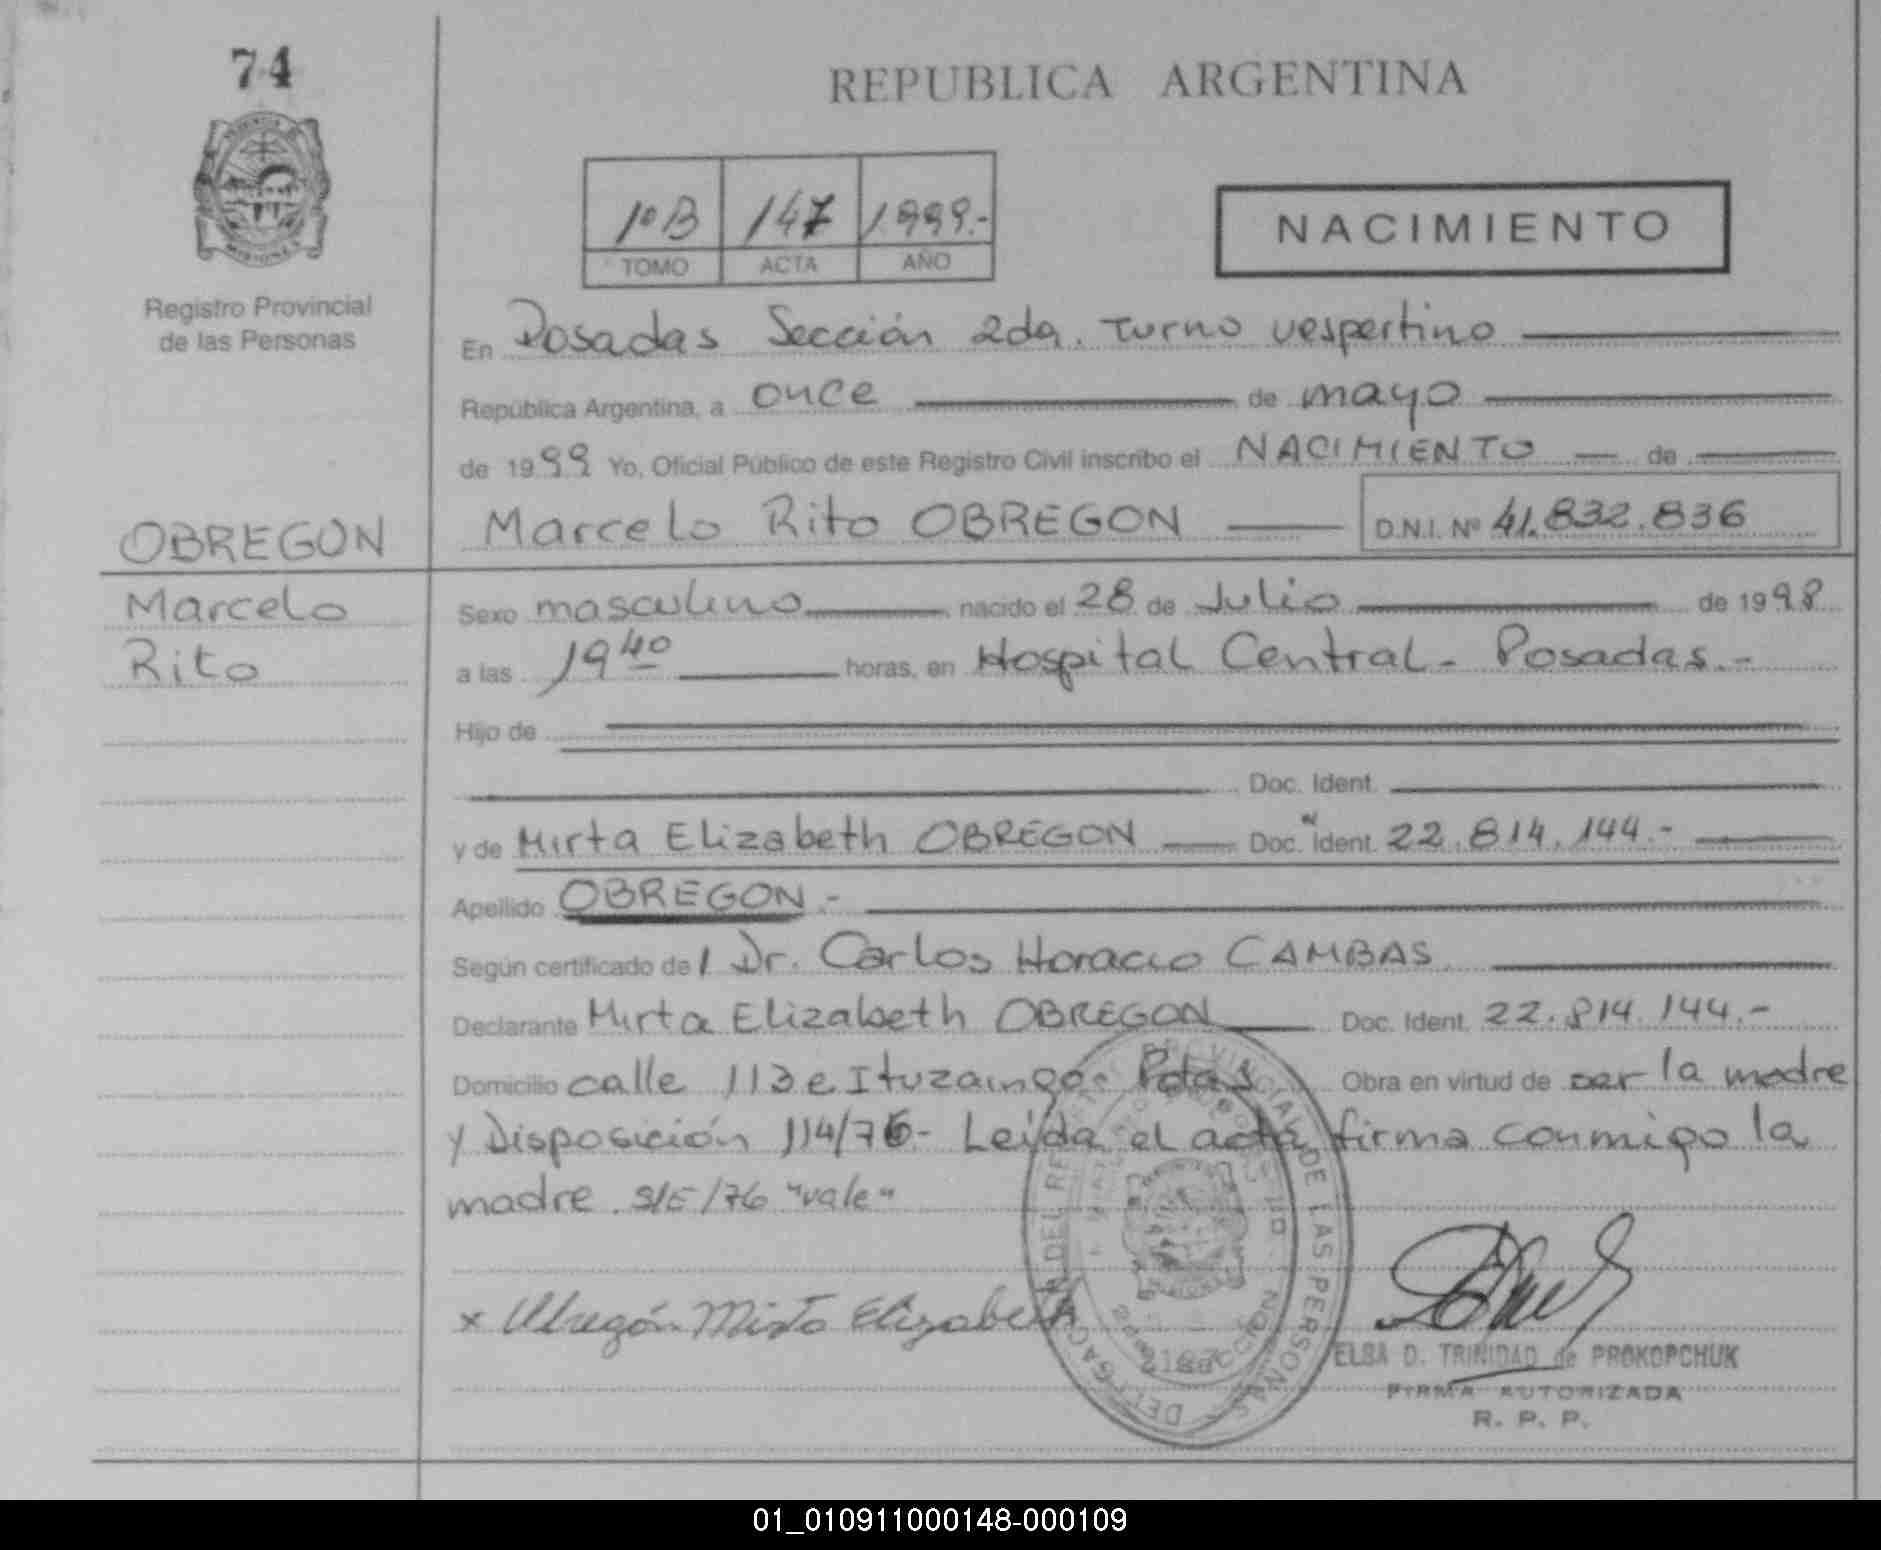 74
REPUBLICA ARGENTINA
1º B 147 1.999.-
TOMO ACTA AÑO
NACIMIENTO
Registro Provincial
de las Personas
En Posadas Sección 2da. Turno vespertino
República Argentina, a once de mayo
de 1999 Yo, Oficial Público de este Registro Civil inscribo el NACIMIENTO de
OBREGON Marcelo Rito OBREGON D.N.I. Nº 41.832.836
Marcelo Sexo masculino nacido el 28 de Julio de 1998
Rito a las 19 40 horas, en Hospital Central - Posadas.-
Hijo de
Doc. Ident.
y de Mirta Elizabeth OBREGON Doc. Ident. 22.814.144.-
Apellido OBREGON.-
Según certificado del Dr. Carlos Horacio CAMBAS
Declarante Mirta Elizabeth OBREGON Doc. Ident. 22.814.144.-
Domicilio calle 113 e Ituzaingo- Pdas Obra en virtud de ser la madre
y Disposición 114/76- Leída el acta firma conmigo la
madre. S/E/76 "vale"
x Obregón Mirta Elizabeth
DELEGACION DEL REGISTRO PROVINCIAL DE LAS PERSONAS
ELSA D. TRINIDAD de PROKOPCHUK
FIRMA AUTORIZADA
R. P. P.
01_010911000148-000109